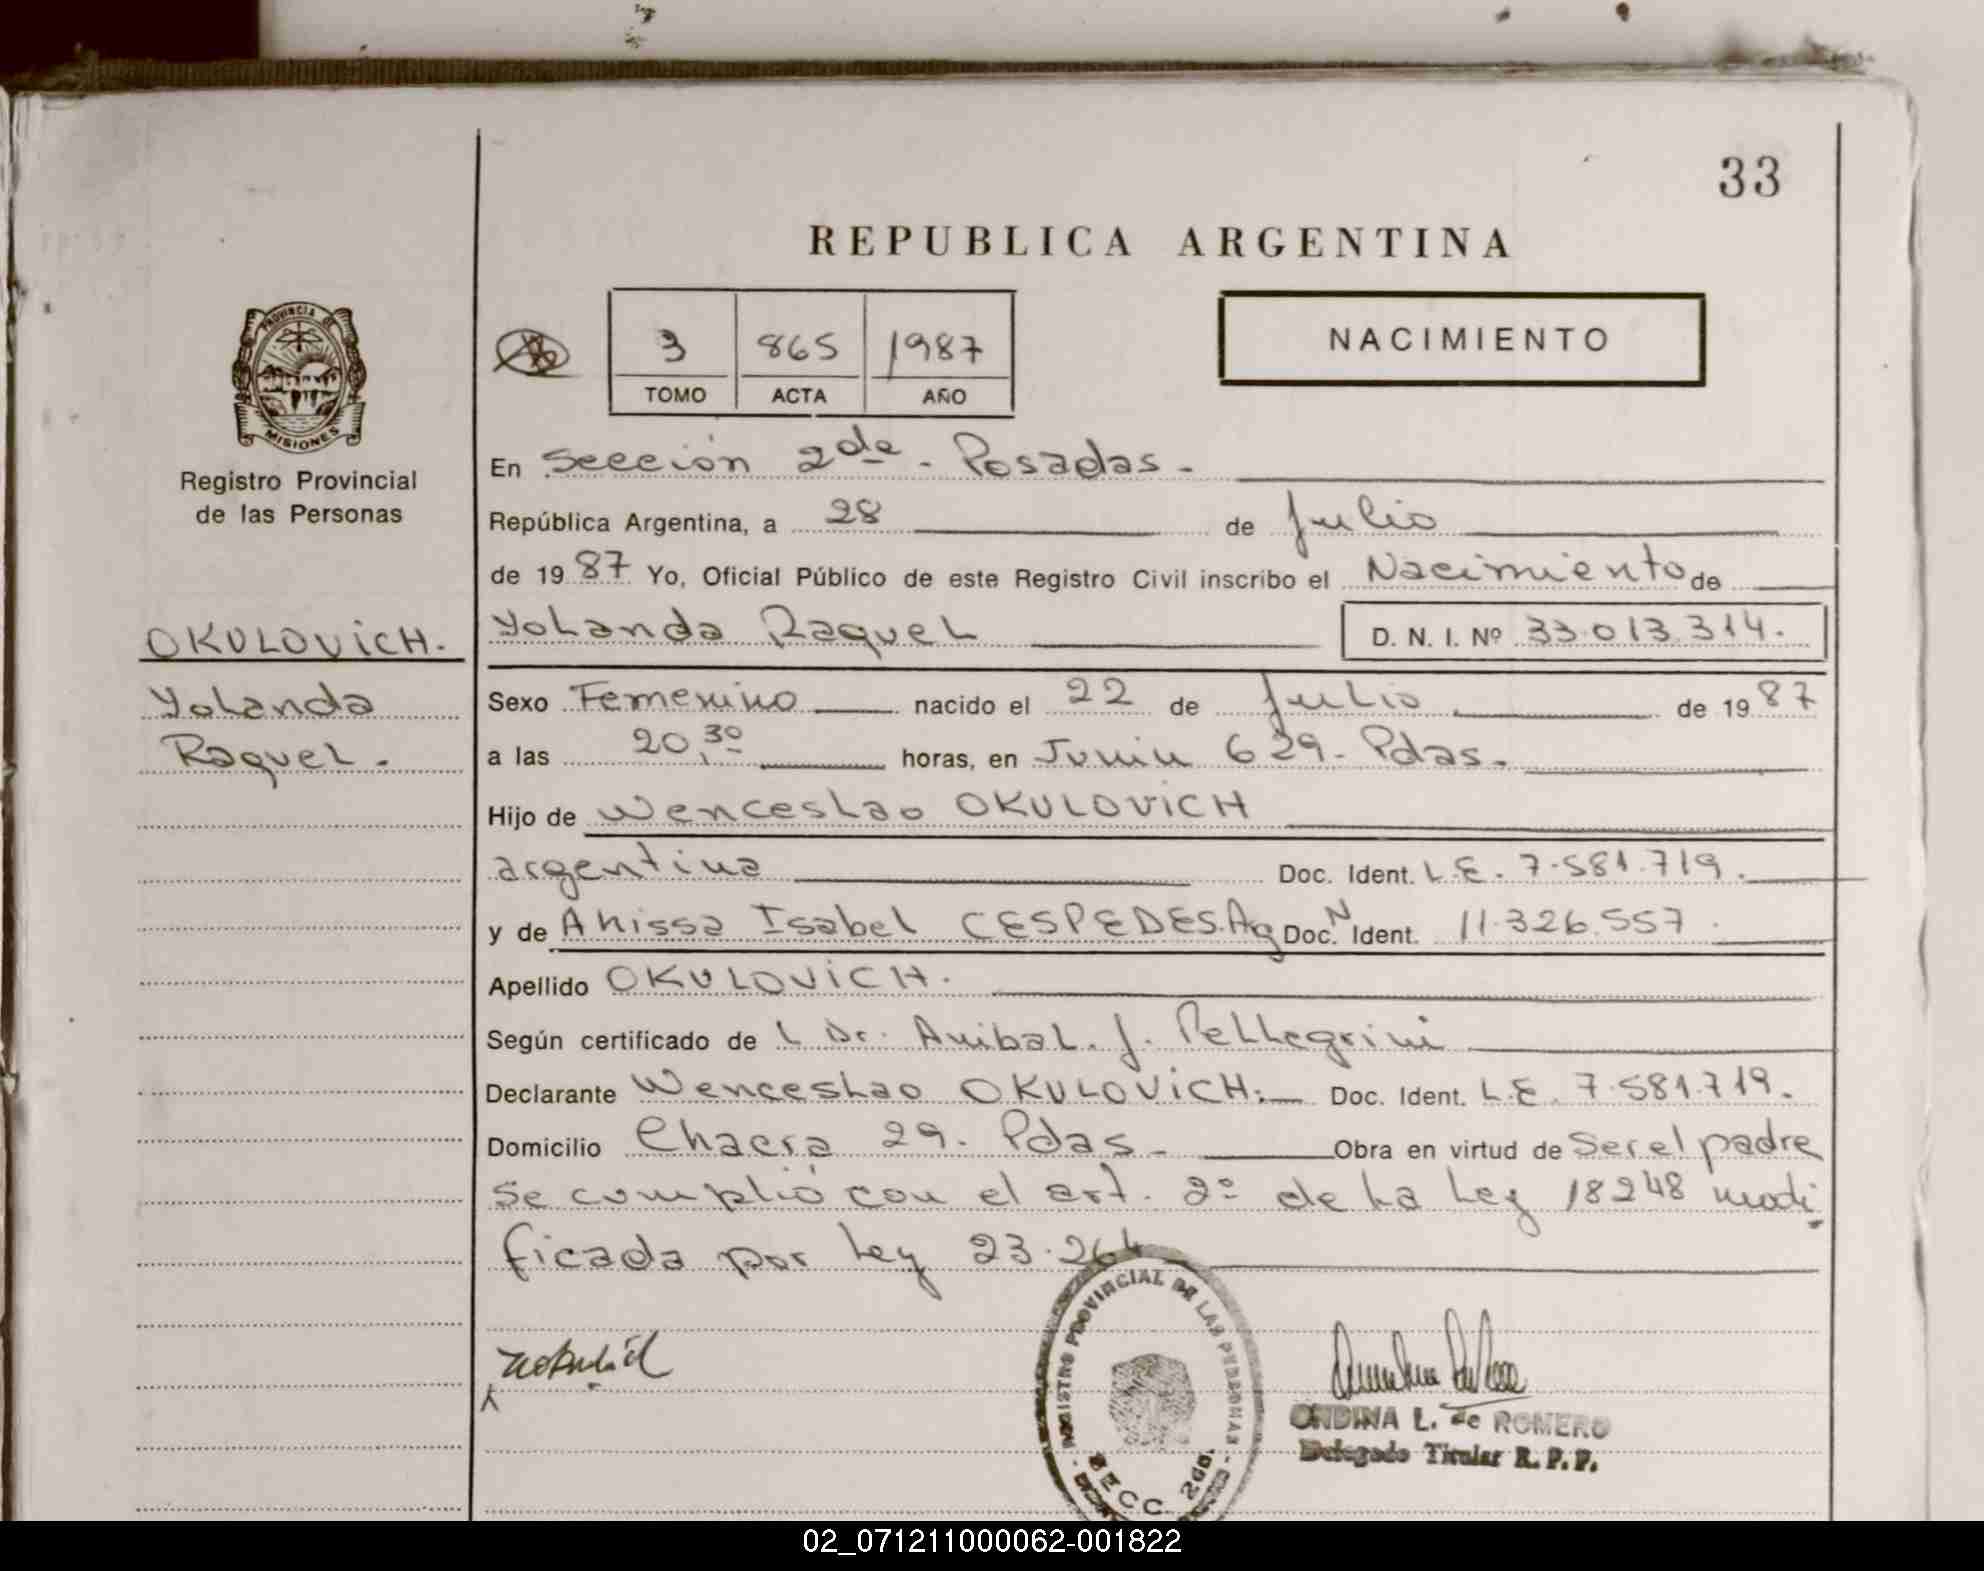 33
REPUBLICA ARGENTINA
3 865 1987
TOMO ACTA AÑO
NACIMIENTO
PROVINCIA DE
MISIONES
Registro Provincial
de las Personas
OKULOViCH.
Yolanda
Raquel.
En Sección 2da - Posadas -
República Argentina, a 28 de Julio
de 1987 Yo, Oficial Público de este Registro Civil inscribo el Nacimiento de
Yolanda Raquel D. N. I. Nº 33.013.314.
Sexo Femenino nacido el 22 de Julio de 1987
a las 20,30 horas, en Junin 629 - Pdas.
Hijo de Wenceslao OKULOViCH
argentina Doc. Ident. L.E. 7.581.719.
y de Anissa Isabel CESPEDES. Ag N Doc. Ident. 11.326.557.
Apellido OKULOViCH.
Según certificado de L Dr. Anibal. J. Pellegrini
Declarante Wenceslao OKULOViCH. Doc. Ident. L.E. 7.581.719.
Domicilio Chacra 29. Pdas. Obra en virtud de Ser el padre
Se cumplió con el art. 2º de la Ley 18248 modi
ficada por Ley 23.264
REGISTRO PROVINCIAL DE LAS PERSONAS
SECC. 2da.
ONDINA L. de ROMERO
Delegado Titular R. P. P.
02_071211000062-001822